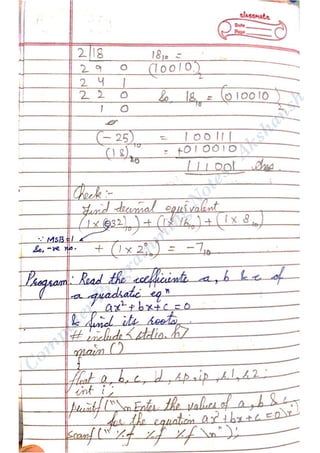 classmate
Date
Page
2 | 18    18₁₀ =
2 9 0    (10010)₂
2 4 1
2 2 0    So, 18₁₀ = (010010)₂
1 0
(-25)₁₀ = 100111
(18)₁₀ = +010010
111001 Ans.
Check :-
Find decimal equivalent
(1×(-32)₁₀) + (1×16₁₀) + (1×8₁₀)
∵ MSB=1
So, -ve no.    + (1×2⁰₁₀) = -7₁₀
Program: Read the coefficients a, b & c of
a quadratic eqⁿ
ax²+bx+c=0
& find its roots.
# include <stdio.h>
main ()
{
float a, b, c, d, rp, ip, x1, x2;
int i;
printf("\n Enter the values of a, b & c
for the equation ax²+bx+c=0\n");
scanf(" %f %f %f \n");